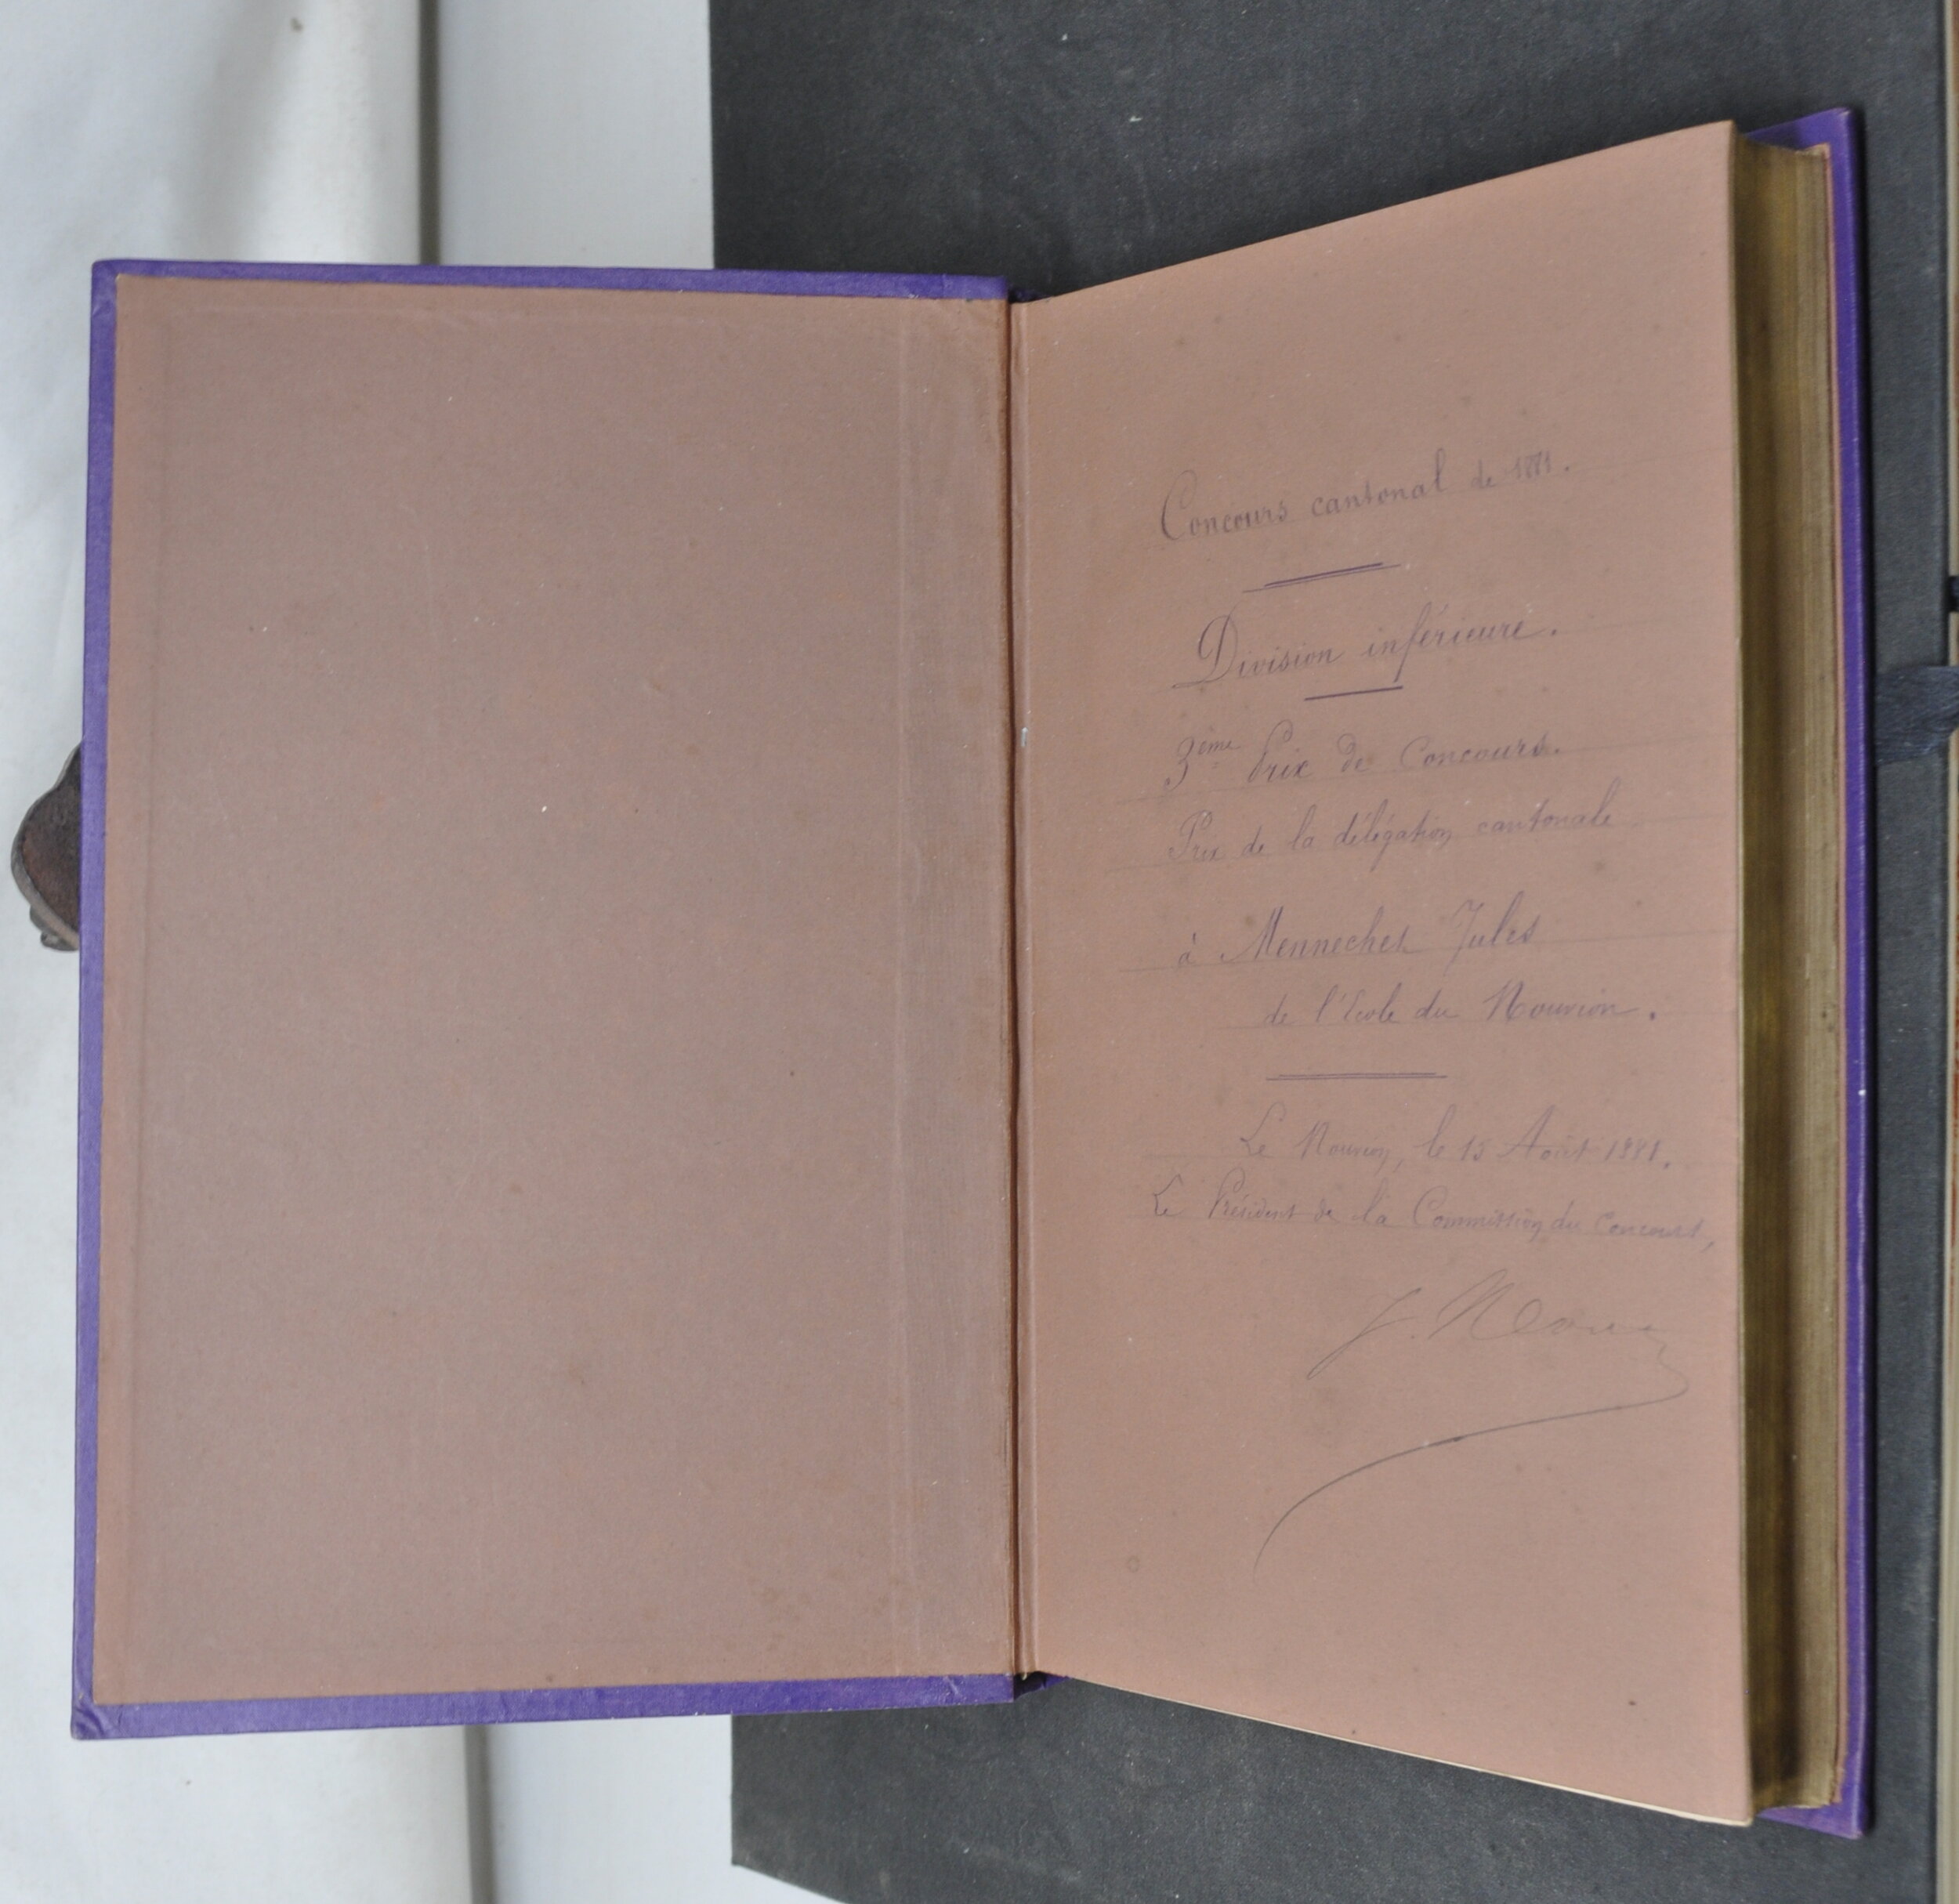 Concours cantonal de 1881.
Division inférieure.
3ème Prix de Concours.
Prix de la délégation cantonale
à Mennechet Jules
de l'Ecole du Nouvion.
Le Nouvion, le 15 Août 1881.
Le Président de la Commission du Concours,